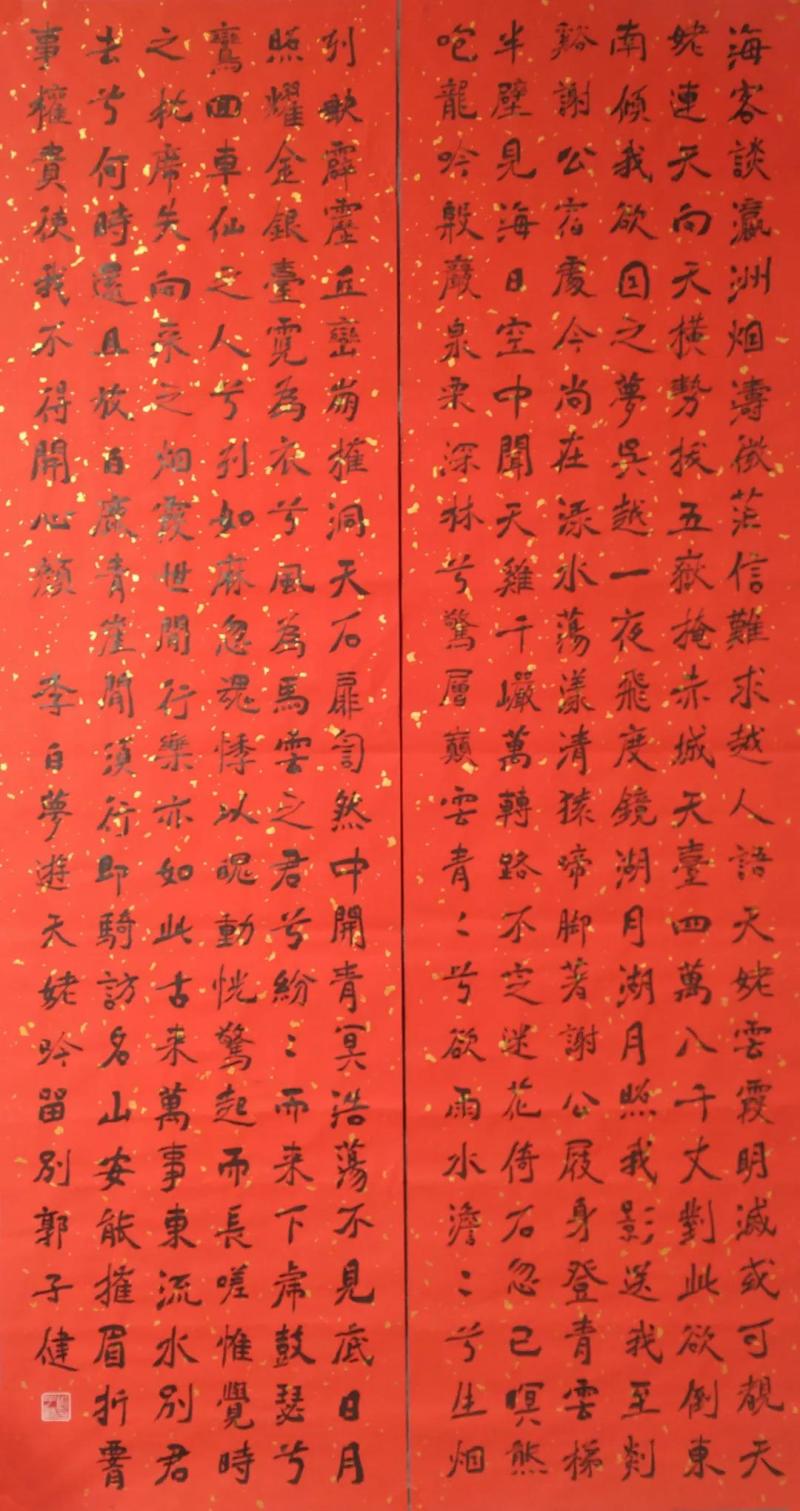 海客談瀛洲烟濤微茫信難求越人語天姥雲霞明滅或可覩天
姥連天向天橫勢拔五嶽掩赤城天臺四萬八千丈對此欲倒東
南傾我欲因之夢吳越一夜飛度鏡湖月湖月照我影送我至剡
谿謝公宿處今尚在淥水蕩漾清猿啼脚著謝公屐身登青雲梯
半壁見海日空中聞天雞千巖萬轉路不定迷花倚石忽已暝熊
咆龍吟殷巖泉栗深林兮驚層巔雲青〻兮欲雨水澹〻兮生烟
列缺霹靂丘巒崩摧洞天石扉訇然中開青冥浩蕩不見底日月
照耀金銀臺霓為衣兮風為馬雲之君兮紛〻而来下虎鼓瑟兮
鸞回車仙之人兮列如麻忽魂悸以魄動恍驚起而長嗟惟覺時
之枕席失向来之烟霞世間行樂亦如此古来萬事東流水別君
去兮何時還且放白鹿青崖間須行即騎訪名山安能摧眉折腰
事權貴使我不得開心顏 李白夢遊天姥吟留別郭子健